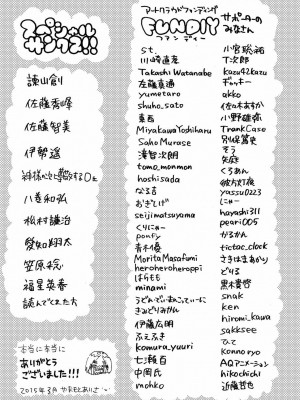 スペシャル
サンクス!!
諫山創
佐藤秀峰
佐藤智美
伊勢遥
八巻和弘
松村謙治
愛知翔太
笠原稔
福星英春
読んでくれた方
本当に本当に
ありがとう
ございました!!!
2015年3月
アートクラウドファンディング
FUNDIY
ファンディー
サポーターの
みなさん
st.
川崎直孝
Takashi Watanabe
佐藤真通
yumetaro
shuho_sato
東西
Miyakawa Yoshiharu
Saho Murase
澤智次朗
tomo_monmon
hoshisada
なる吉
おぎてげ
seijimatsuyama
くりにゅー
ponfy
青木優
Morita Masafumi
heroheroheroppi
はらもも
minami
きみどりみかん
伊藤広明
ふえふき
komura_yuuri
七瀬百
中岡氏
mohko
小宮聡祐
T次郎
kazu42kazu
ギョッキー
akko
佐々木あすか
小野雄弥
TrankCase
別保篤史
そう
矢庭
くうあん
彼方灯夜
yassu0223
にゃー
hayashi311
peari005
かるかん
tictac_clock
さきはまあかり
どりる
黒木貴啓
snak
ken
hiromi_kawa
sakksee
ひて
Konno ryo
AQアニメーション
hikochichi
近藤哲也